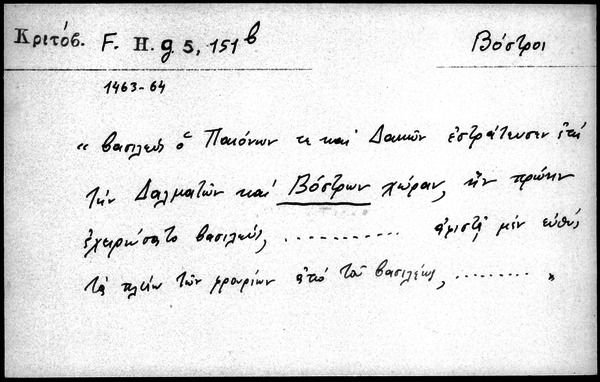 Κριτόβ. F. H. g. 5, 151b Βόστροι
1463-64
“ βασιλεὺς ὁ Παιόνων τε καὶ Δακῶν ἐστράτευσεν ἐπὶ
τὴν Δαλματῶν καὶ Βόστρων χώραν, ἣν πρώην
ἐχειρώσατο βασιλεὺς, ............ ἀφιστᾷ μὲν εὐθὺς
τὰ πλείω τῶν φρουρίων ἀπὸ τοῦ βασιλέως, ........ ”